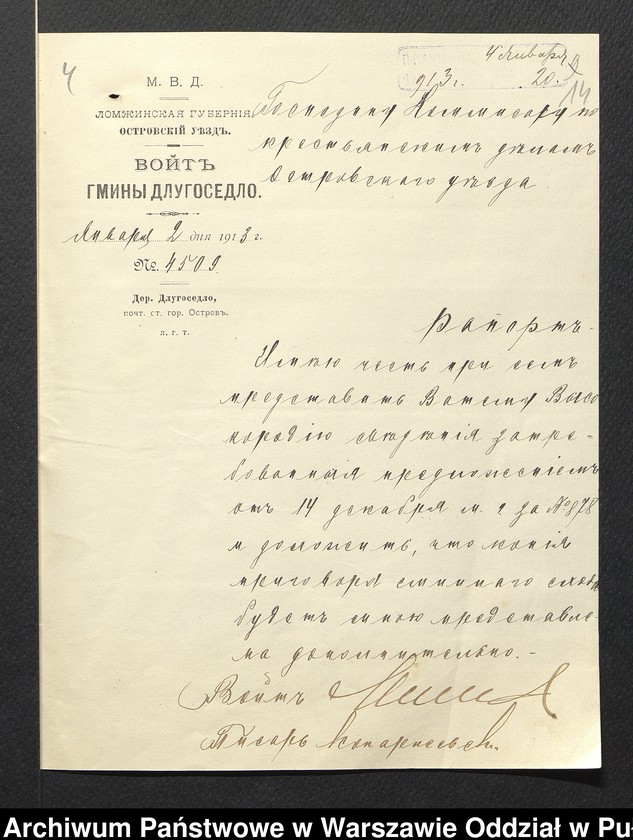 4
4 Января
1913 г.
20.
14
М. В. Д.
ЛОМЖИНСКАЯ ГУБЕРНІЯ
ОСТРОВСКІЙ УѢЗДЪ.
ВОЙТЪ
ГМИНЫ ДЛУГОСЕДЛО.
Января 2 дня 1913 г.
№. 4509
Дер. Длугоседло,
почт. ст. гор. Островъ.
Л. Г. Т.
Господину Коммисару по
крестьянскимъ дѣламъ
Островскаго уѣзда
Рапортъ.
Имѣю честь при семъ
представить Вашему Высо
кородію свѣдѣнія затре-
бованныя предложеніемъ
отъ 14 декабря м. г за № 878
и доложить, что копія
приговора гминнаго схода
будетъ мною представле-
на дополнительно.-
Войтъ
Писарь
Archiwum Państwowe w Warszawie Oddział w Pu